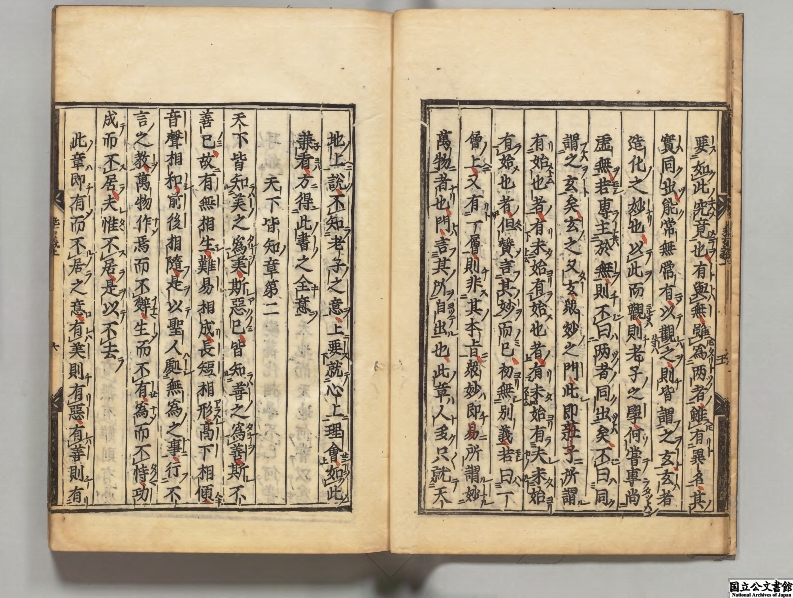 要如此究竟也有與無雖為兩者雖有異名其
實同出能常無常有以觀之則皆謂之玄玄者
造化之妙也以此而觀則老子之學何嘗專尚
虛無若專主於無則不曰兩者同出矣不曰同
謂之玄矣玄之又玄衆妙之門此即莊子所謂
有始也者有未始有始也者有未始有夫未始
有始也者但贊言其妙而已初無別義若曰一
層上又有一層則非其本旨衆妙即易所謂妙
萬物者也門言其所自出也此章人多只就天
地上說不知老子之意正要就心上理會如此
兼看方得此書之全意
天下皆知章第二
天下皆知美之為美斯惡已皆知善之為善斯不
善已故有無相生難易相成長短相形高下相傾
音聲相和前後相隨是以聖人處無為之事行不
言之教萬物作焉而不辭生而不有為而不恃功
成而不居夫惟不居是以不去
此章即有而不居之意有美則有惡有善則有
国立公文書館
National Archives of Japan